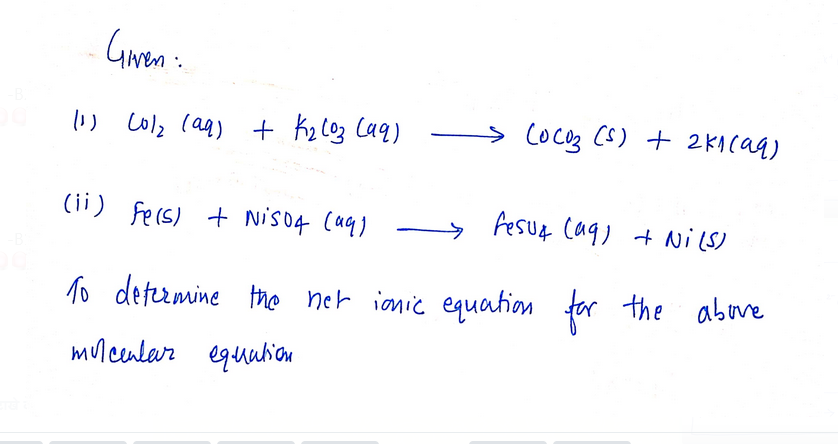 Given:
(i) CoI₂ (aq) + K₂CO₃ (aq) ⟶ COCO₃ (s) + 2KI (aq)
(ii) Fe(s) + NiSO₄ (aq) ⟶ FeSO₄ (aq) + Ni(s)
To determine the net ionic equation for the above
molecular equation